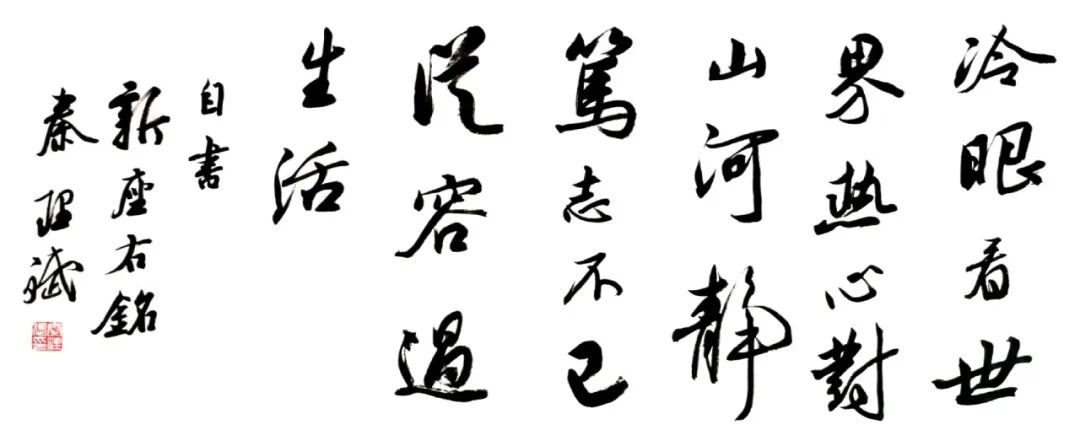 冷眼看世
界热心對
山河静
篤志不已
從容過
生活
自書
新座右銘
秦理斌